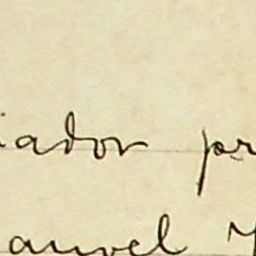 iador pr
anuel